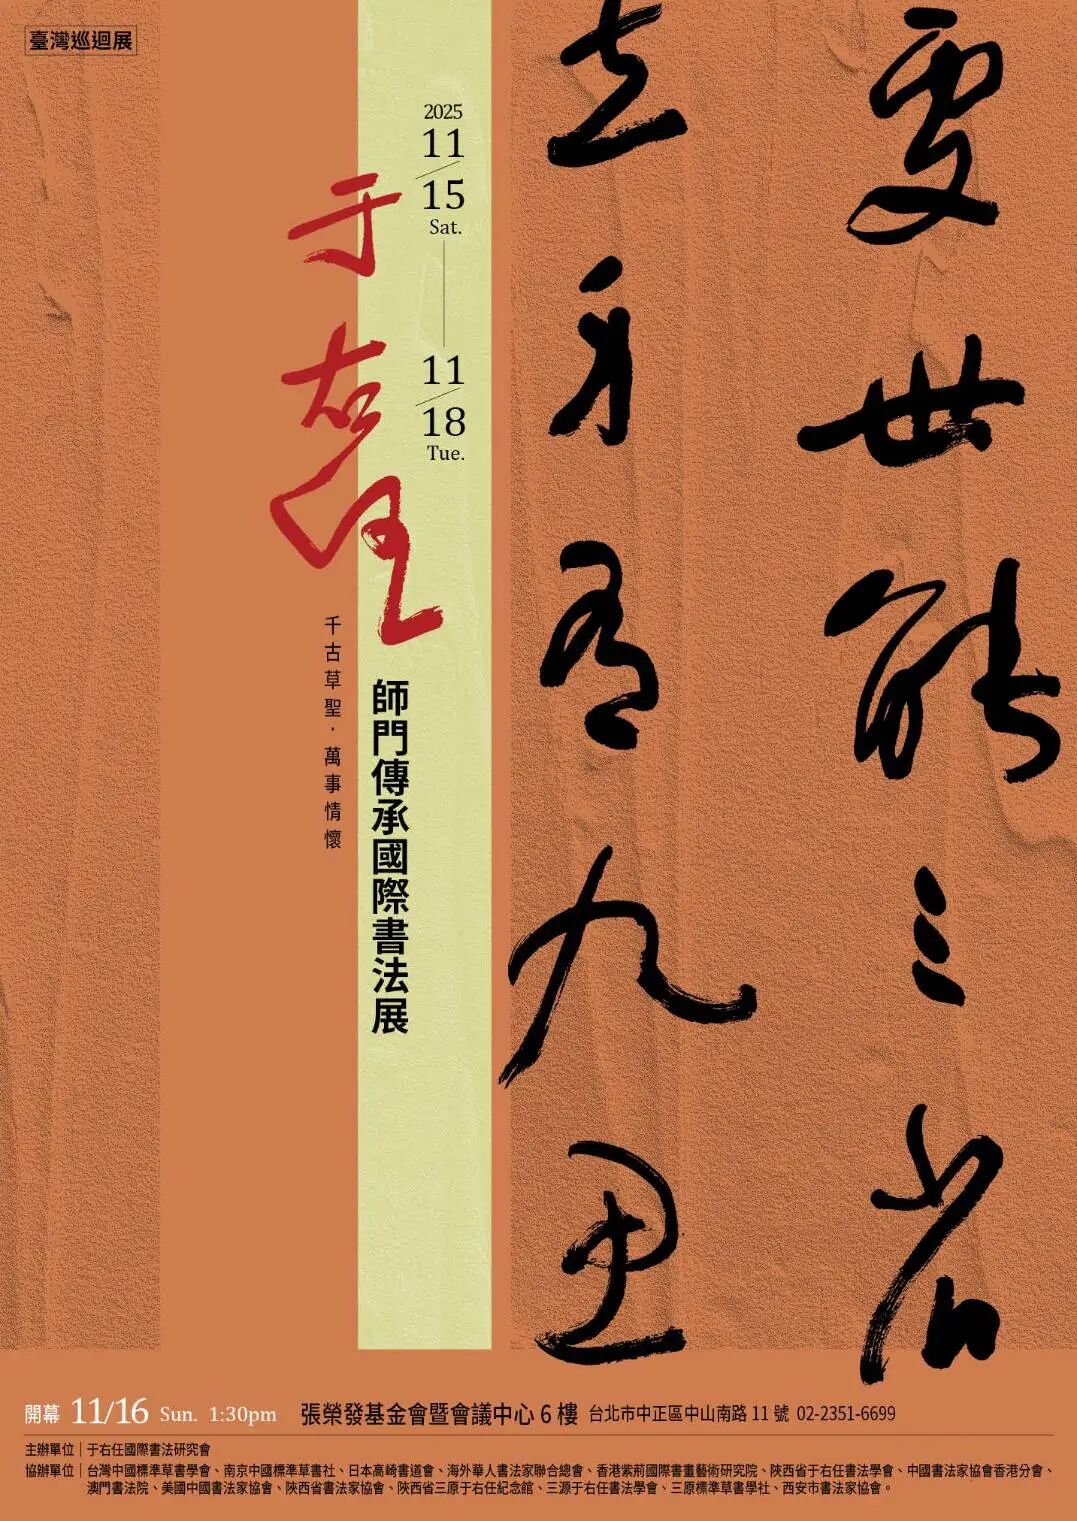 臺灣巡迴展
處世能三省
立身有九思
2025
11/15
Sat.
11/18
Tue.
于右任
師門傳承國際書法展
千古草聖．萬事情懷
開幕 11/16 Sun. 1:30pm 張榮發基金會暨會議中心 6 樓 台北市中正區中山南路 11 號 02-2351-6699
主辦單位｜于右任國際書法研究會
協辦單位｜台灣中國標準草書學會、南京中國標準草書社、日本高崎書道會、海外華人書法家聯合總會、香港紫荊國際書畫藝術研究院、陝西省于右任書法學會、中國書法家協會香港分會、
澳門書法院、美國中國書法家協會、陝西省書法家協會、陝西省三原于右任紀念館、三源于右任書法學會、三原標準草書學社、西安市書法家協會。